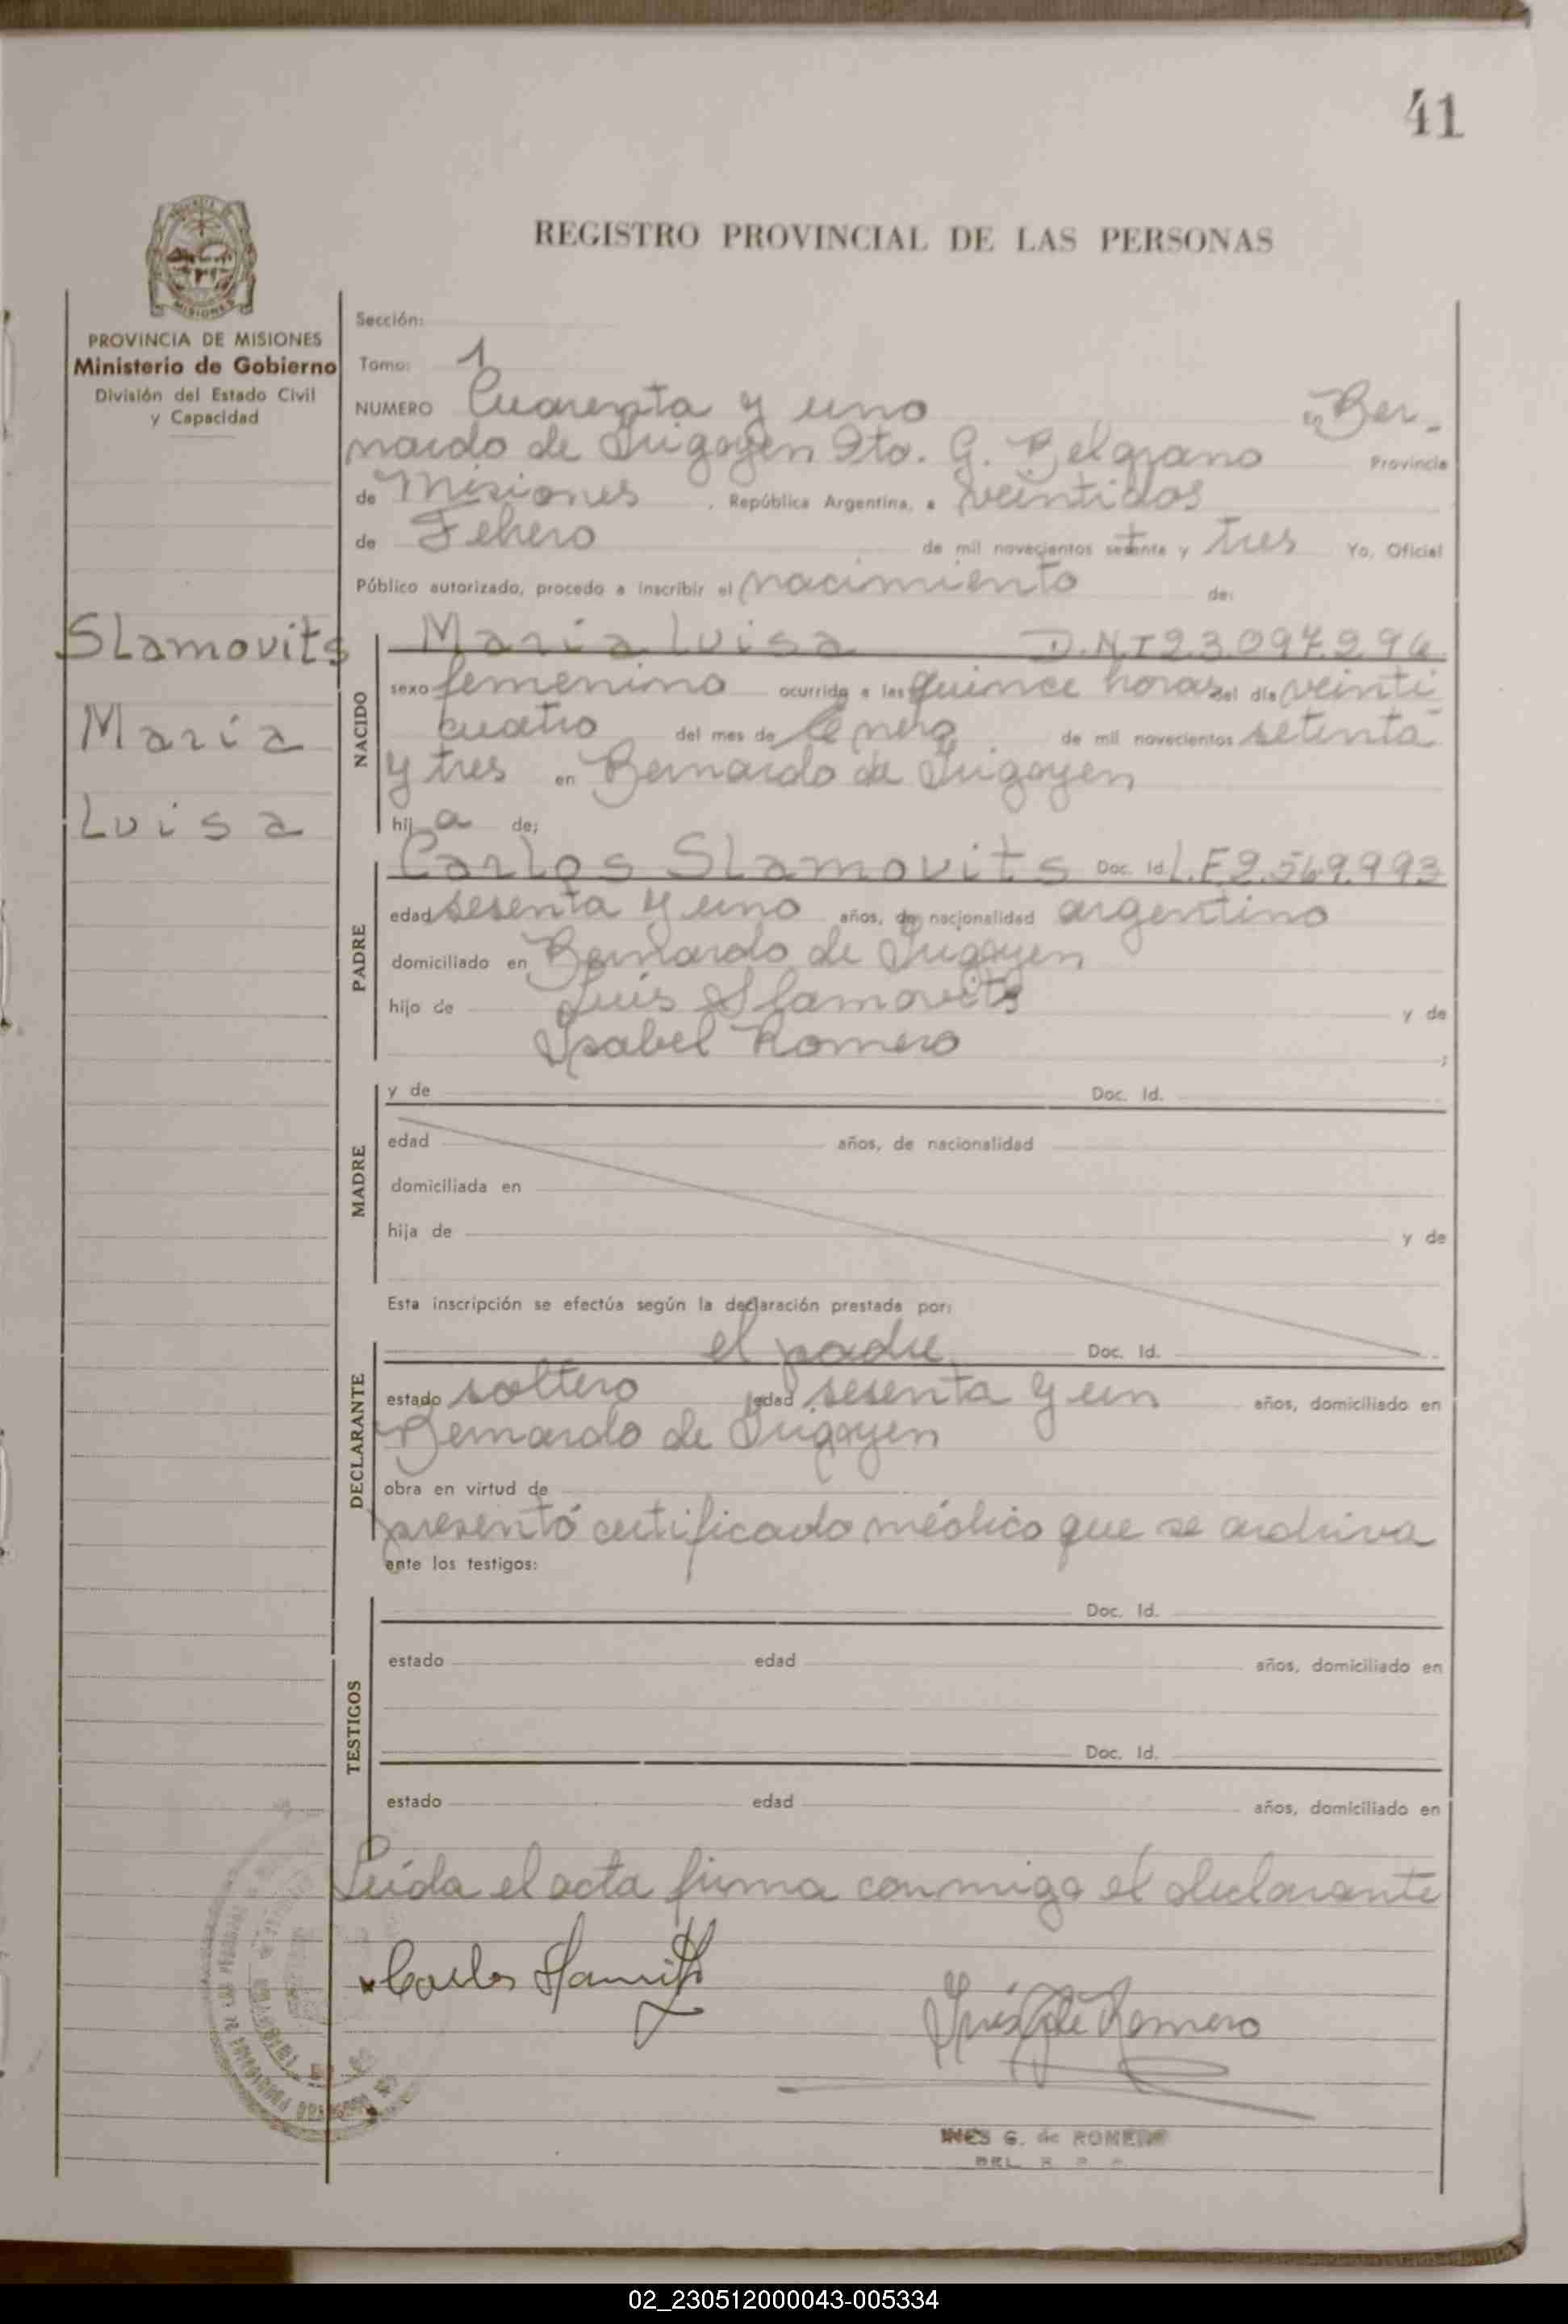 41
REGISTRO PROVINCIAL DE LAS PERSONAS
PROVINCIA DE MISIONES
Ministerio de Gobierno
División del Estado Civil
y Capacidad
Sección:
Tomo: 1
NUMERO Cuarenta y uno en Ber-
nardo de Irigoyen Dto. G. Belgrano Provincia
de Misiones, República Argentina, a veintidos
de Febrero de mil novecientos setenta y tres Yo, Oficial
Público autorizado, procedo a inscribir el nacimiento de:
Slamovits
María
Luisa
NACIDO
María Luisa D.N.I 23.097.294
sexo femenino ocurrido a las quince horas del día veinti
cuatro del mes de Enero de mil novecientos setenta
y tres en Bernardo de Irigoyen
hij a de;
PADRE
Carlos Slamovits Doc. Id. L.E 2.569.993
edad sesenta y uno años, de nacionalidad argentino
domiciliado en Bernardo de Irigoyen
hijo de Luis Slamovits y de
Isabel Romero ;
MADRE
y de Doc. Id.
edad años, de nacionalidad
domiciliada en
hija de y de
Esta inscripción se efectúa según la declaración prestada por:
DECLARANTE
el padre Doc. Id.
estado soltero edad sesenta y un años, domiciliado en
Bernardo de Irigoyen
obra en virtud de
presentó certificado médico que se archiva
ante los testigos:
TESTIGOS
Doc. Id.
estado edad años, domiciliado en
Doc. Id.
estado edad años, domiciliado en
Leída el acta firma conmigo el declarante
Carlos Slamovits
Inés G de Romero
INES G. de ROMERO
02_230512000043-005334